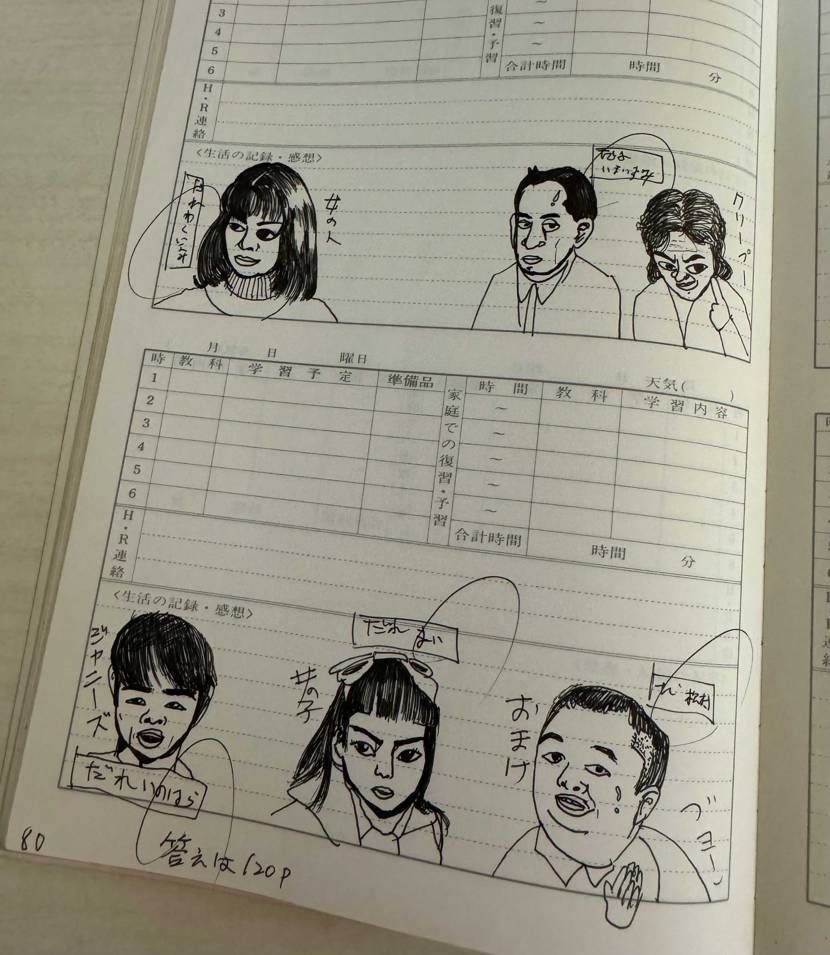 3
4
5
6
復習・予習
～
～
～
合計時間 時間 分
H・R連絡
〈生活の記録・感想〉
女の人
クリーパー
月 日 曜日
天気( )
時 教科 学習予定 準備品 家庭での復習・予習 時間 教科 学習内容
1 ～
2 ～
3 ～
4 ～
5 ～
6 合計時間 時間 分
H・R連絡
〈生活の記録・感想〉
ジャニーズ
だれ
女の子
だれ
おまけ
松村
ブヨーン
80
答えは120P